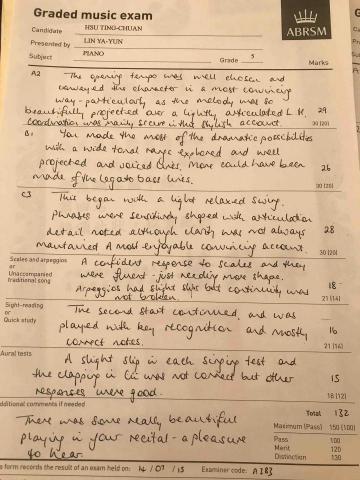 Graded music exam
ABRSM
Candidate HSU TING-CHUAN
Presented by LIN YA-YUN
Subject PIANO Grade 5 Marks
A2 The opening tempo was well chosen and
conveyed the character in a most convincing
way - particularly as the melody was so
beautifully projected over a lightly articulated L.H.
Coordination was mainly secure in this stylish account. 29
30 (20)
B1 You made the most of the dramatic possibilities
with a wide tonal range explored and well
projected and voiced lines. More could have been 26
made of the legato bass lines.
30 (20)
C3 This began with a light relaxed swing.
Phrases were sensitively shaped with articulation
detail noted although clarity was not always 28
maintained. A most enjoyable convincing account.
30 (20)
Scales and arpeggios
or
Unaccompanied
traditional song
A confident response to scales and they
were fluent - just needing more shape.
Arpeggios had slight slip but continuity was 18
not broken.
21 (14)
Sight-reading
or
Quick study
The second start continued, and was
played with key recognition and mostly 16
correct notes.
21 (14)
Aural tests
A slight slip in each singing test and
the clapping in was not correct but other 15
responses were good.
18 (12)
Additional comments if needed
Total 132
There was some really beautiful
playing in your recital - a pleasure
to hear.
Maximum (Pass) 150 (100)
Pass 100
Merit 120
Distinction 130
form records the result of an exam held on: 14/07/15 Examiner code: A383